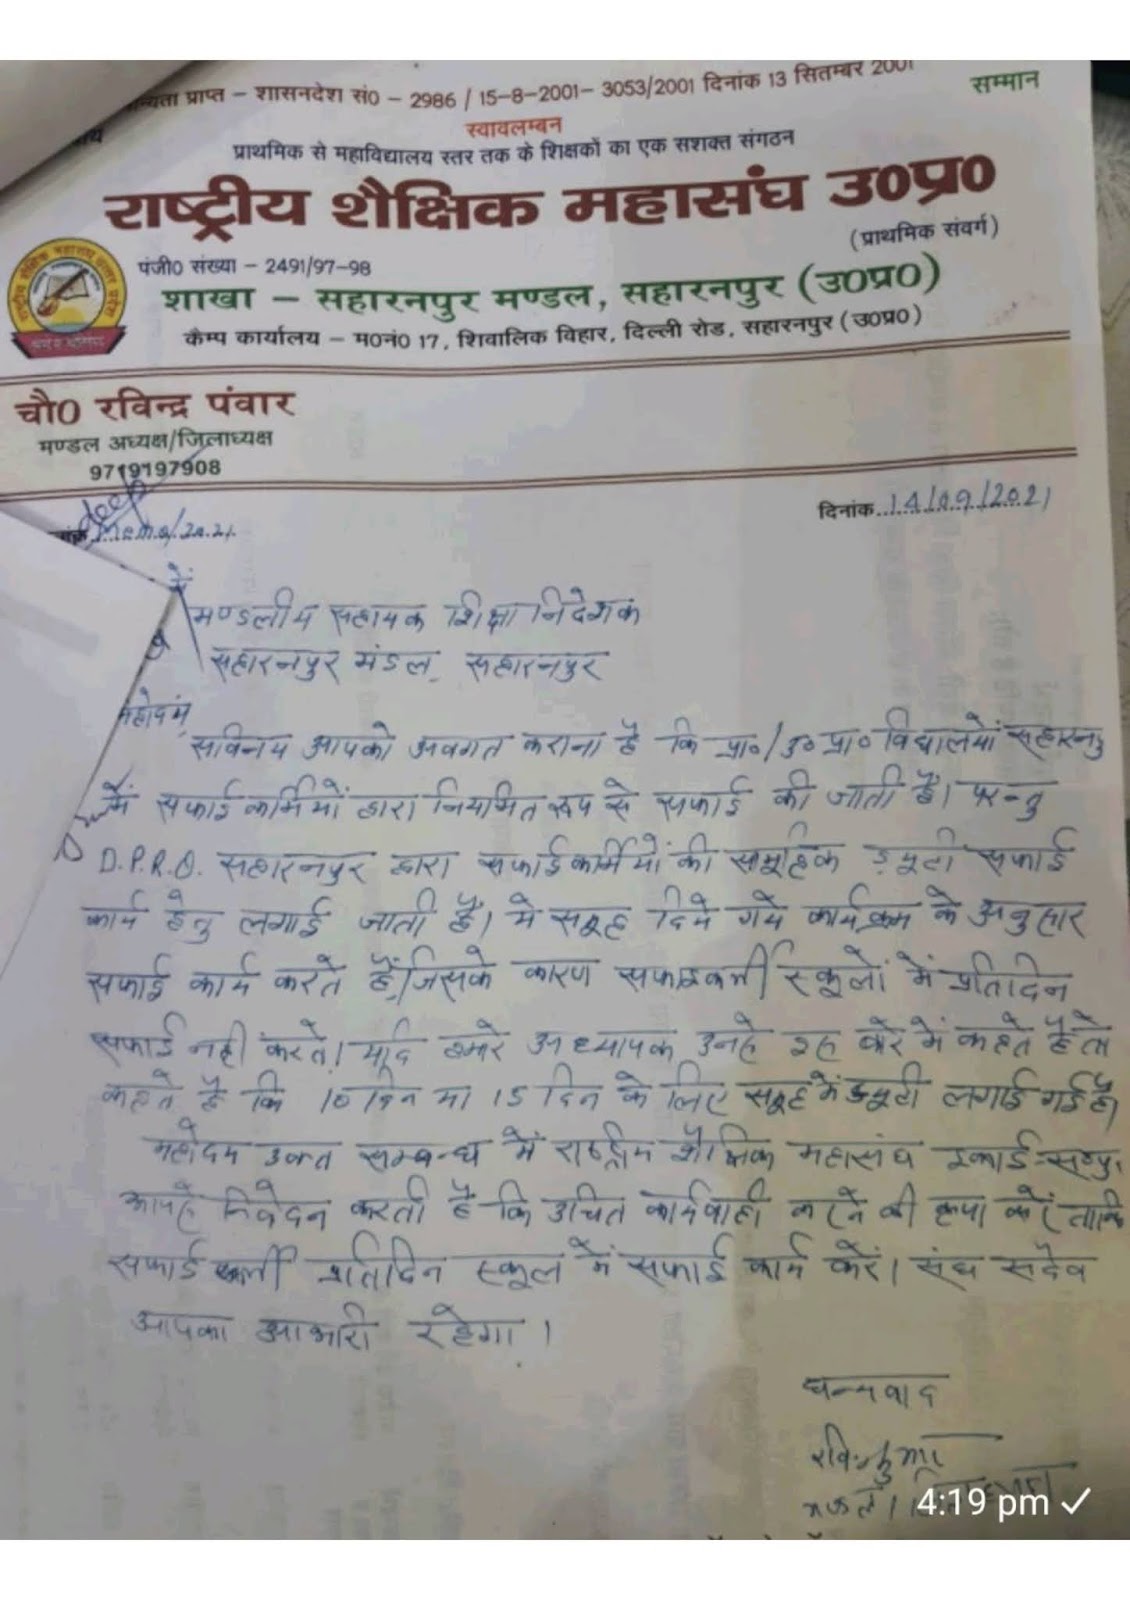 न्यता प्राप्त – शासनदेश सं0 – 2986 / 15-8-2001- 3053/2001 दिनांक 13 सितम्बर 2001
सम्मान
स्वावलम्बन
प्राथमिक से महाविद्यालय स्तर तक के शिक्षकों का एक सशक्त संगठन
राष्ट्रीय शैक्षिक महासंघ उ0प्र0
(प्राथमिक संवर्ग)
पंजी0 संख्या – 2491/97-98
शाखा – सहारनपुर मण्डल, सहारनपुर (उ0प्र0)
कैम्प कार्यालय – म0नं0 17, शिवालिक विहार, दिल्ली रोड, सहारनपुर (उ0प्र0)
चौ0 रविन्द्र पंवार
मण्डल अध्यक्ष/जिलाध्यक्ष
9719197908
दिनांक 14/09/2021
Memo/2021
में
मण्डलीय सहायक शिक्षा निदेशक
सहारनपुर मंडल, सहारनपुर
महोदय,
सविनय आपको अवगत कराना है कि प्रा०/उ० प्रा० विद्यालयों सहारनपु
में सफाई कर्मियों द्वारा नियमित रूप से सफाई की जाती है। परन्तु
D.P.R.O. सहारनपुर द्वारा सफाई कर्मियों की सामूहिक ड्यूटी सफाई
कार्य हेतु लगाई जाती है। ये समूह दिये गये कार्यक्रम के अनुसार
सफाई कार्य करते हैं, जिसके कारण सफाईकर्मी स्कूलों में प्रतिदिन
सफाई नहीं करते। यदि हमारे अध्यापक उनसे इस बारे में कहते हैं तो
कहते है कि 10 दिन या 15 दिन के लिए समूह में ड्यूटी लगाई गई है।
महोदय उक्त सम्बन्ध में राष्ट्रीय शैक्षिक महासंघ इकाई-स०पु०
आपसे निवेदन करती है कि उचित कार्यवाही करने की कृपा करें ताकि
सफाई कर्मी प्रतिदिन स्कूल में सफाई कार्य करें। संघ सदैव
आपका आभारी रहेगा।
धन्यवाद
रवि कुमार
4:19 pm ✓